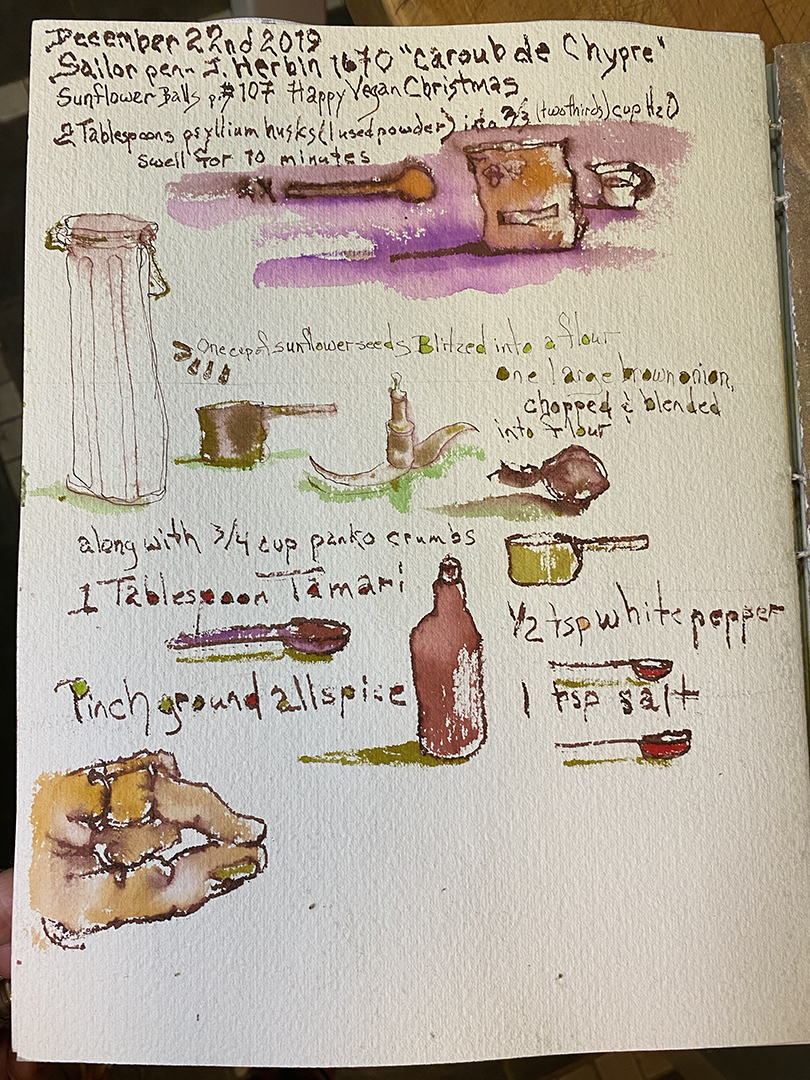 December 22nd 2019
Sailor pen - J. Herbin 1670 "Caroub de Chypre"
Sunflower Balls p.# 107 Happy Vegan Christmas
2 Tablespoons psyllium husks (I used powder) into 2/3 (two thirds) cup H2O
swell for 10 minutes
4X
One cup of sunflower seeds Blitzed into a flour
one large brown onion,
chopped & blended
into flour
along with 3/4 cup panko crumbs
1 Tablespoon Tamari
1/2 tsp white pepper
Pinch ground allspice
1 tsp salt